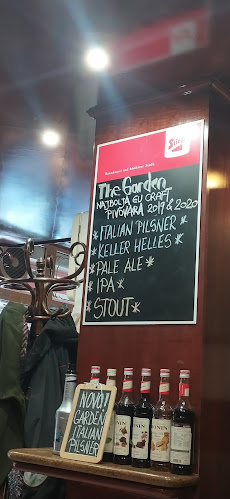 Stiegl
The Garden
NAJBOLJA EU CRAFT
PIVOVARA 2019 & 2020
*ITALIAN PILSNER*
*KELLER HELLES*
*PALE ALE*
*IPA*
*STOUT*
NOVO!
GARDEN
ITALIAN
PILSNER
MONIN
MONIN
MONIN